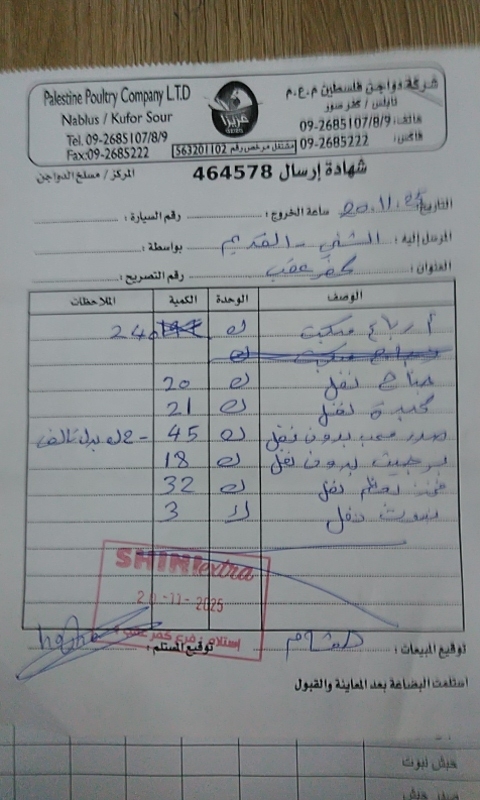 Palestine Poultry Company L.T.D
Nablus / Kufor Sour
Tel. 09-2685107/8/9
Fax:09-2685222
عزيزا
مشتغل مرخص رقم 563201102
شركة دواجن فلسطين م.ع.م
نابلس / كفر صور
هاتف: 09-2685107/8/9
فاكس: 09-2685222
شهادة إرسال 464578
المركز / مسلخ الدواجن
التاريخ: 20.11.25 ساعة الخروج: رقم السيارة:
المرسل إليه: الشني - القديم بواسطة:
العنوان: كفر عقب رقم التصريح:
الوصف الوحدة الكمية الملاحظات
أرباع ك 240
جناح نفل ك 20
كبدة نفل ك 21
صدر بدون نفل ك 45 - 2ك بدل تالف
بدون نفل ك 18
نفل ك 32
نفل ك 3
SHINI extra
20-11-2025
استلام: فرع كفر عقب
توقيع المبيعات: هشام توقيع المستلم:
استلمت البضاعة بعد المعاينة والقبول
حبش نبوت
صدر حبش